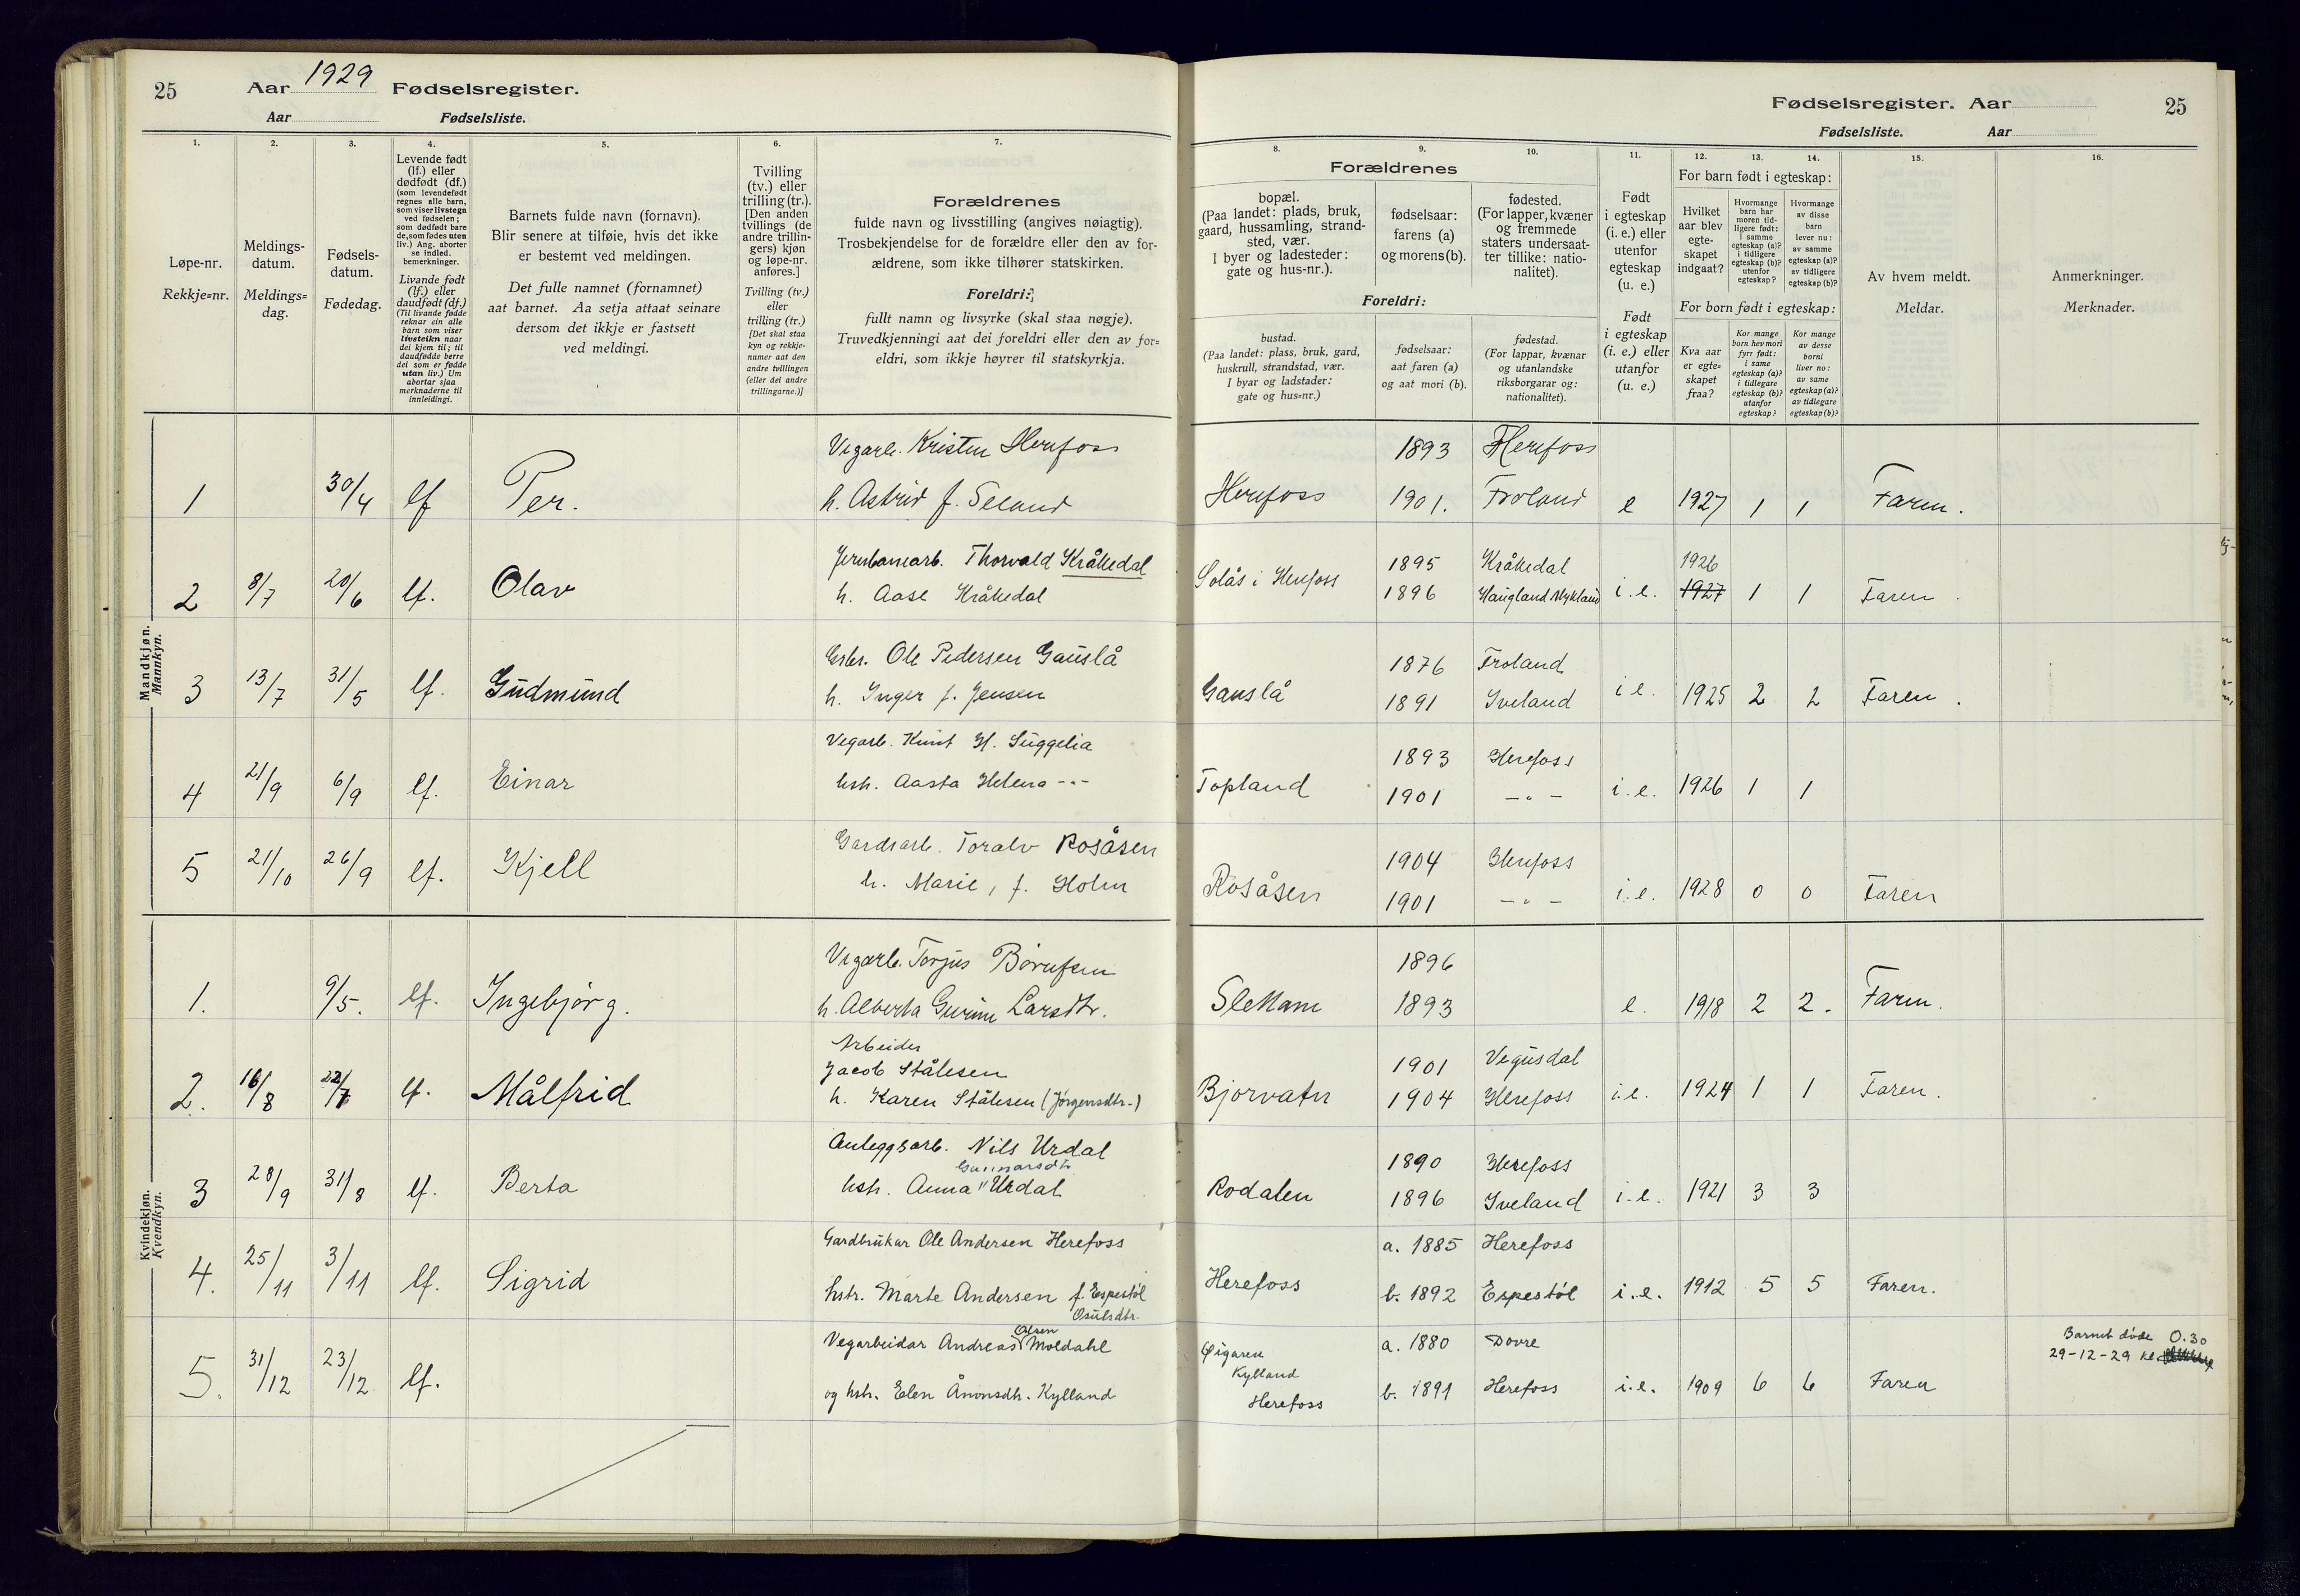 25 Aar 1929 Fødselsregister.
Aar Fødselsliste.
1. 2. 3. 4. 5. 6. 7.
Løpe-nr.
Rekkje=nr.
Meldings-
datum.
Meldings=
dag.
Fødsels-
datum.
Fødedag.
Levende født
(lf.) eller
dødfødt (df.)
(som levendefødt
regnes alle barn,
som viser livstegn
ved fødselen;
som dødfødt bare
de, som fødes uten
liv.) Ang. aborter
se indled.
bemerkninger.
Livande født
(lf.) eller
daudfødt (df.)
(Til livande fødde
reknar ein alle
barn som viser
livsteikn naar
dei kjem til; til
daudfødde berre
dei som er fødde
utan liv.) Um
abortar sjaa
merknaderne til
innleidingi.
Barnets fulde navn (fornavn).
Blir senere at tilføie, hvis det ikke
er bestemt ved meldingen.
Det fulle namnet (fornamnet)
aat barnet. Aa setja attaat seinare
dersom det ikkje er fastsett
ved meldingi.
Tvilling
(tv.) eller
trilling (tr.).
[Den anden
tvillings (de
andre trillin-
gers) kjøn
og løpe-nr.
anføres.]
Tvilling (tv.)
eller
trilling (tr.)
[Det skal staa
kyn og rekkje-
numer aat den
andre tvillingen
(eller dei andre
trillingarne.)]
Forældrenes
fulde navn og livsstilling (angives nøiagtig).
Trosbekjendelse for de forældre eller den av for-
ældrene, som ikke tilhører statskirken.
Foreldri:
fullt namn og livsyrke (skal staa nøgje).
Truvedkjenningi aat dei foreldri eller den av for=
eldri, som ikkje høyrer til statskyrkja.
Fødselsregister. Aar 25
Fødselsliste. Aar
8. 9. 10. 11. 12. 13. 14. 15. 16.
Forældrenes
bopæl.
(Paa landet: plads, bruk,
gaard, hussamling, strand-
sted, vær.
I byer og ladesteder:
gate og hus-nr.).
fødselsaar:
farens (a)
og morens (b).
fødested.
(For lapper, kvæner
og fremmede
staters undersaat-
ter tillike: natio-
nalitet).
Foreldri:
bustad.
(Paa landet: plass, bruk, gard,
huskrull, strandstad, vær.
I byar og ladstader:
gate og hus=nr.)
fødselsaar:
aat faren (a)
og aat mori (b).
fødestad.
(For lappar, kvænar
og utanlandske
riksborgarar og:
nationalitet).
Født
i egteskap
(i. e.) eller
utenfor
egteskap
(u. e.)
Født
i egteskap
(i. e.) eller
utanfor
(u. e.)
For barn født i egteskap:
Hvilket
aar blev
egte-
skapet
indgaat?
Hvormange
barn har
moren tid-
ligere født:
i samme
egteskap (a)?
i tidligere
egteskap (b)?
utenfor
egteskap?
Hvormange
av disse
barn
lever nu:
av samme
egteskap (a)?
av tidligere
egteskap (b)?
For born født i egteskap:
Kva aar
er egte=
skapet
fraa?
Kor mange
born hev mori
fyrr født:
i same
egteskap (a)?
i tidlegare
egteskap (b)?
utanfor
egteskap?
Kor mange
av desse
borni
liver no:
av same
egteskap (a)?
av tidlegare
egteskap (b)?
Av hvem meldt.
Meldar.
Anmerkninger.
Merknader.
Mandkjøn.
Mannkyn.
Vegarb. Kristen Herefoss 1893 Herefoss
1 30/4 lf Per. h. Astrid f. Seland Herefoss 1901. Froland e 1927 1 1 Faren.
Jernbanearb. Thorvald Kråkedal 1895 Kråkedal 1926
2 8/7 20/6 lf. Olav h. Aase Kråkedal Solås i Herefoss 1896 Haugland Mykland i.e. 1927 1 1 Faren.
Gbr. Ole Pedersen Gauslå 1876 Froland
3 13/7 31/5 lf. Gudmund h. Inger f. Jensen Gauslå 1891 Iveland i e. 1925 2 2 Faren.
Vegarb. Knut H. Suggelia 1893 Herefoss
4 21/9 6/9 lf. Einar hstr. Aasta Helena -"- Topland 1901 -"- i.e. 1926 1 1
Gardsarb. Toralv Rosåsen 1904 Herefoss
5 21/10 26/9 lf. Kjell h. Marie, f. Holm Rosåsen 1901 -"- i.e. 1928 0 0 Faren
Kvindekjøn.
Kvendkyn.
Vegarb. Torjus Børufsen 1896
1. 9/5. lf. Ingebjørg. h. Alberta Gurine Larsdtr. Slettane 1893 e. 1918 2 2. Faren.
Arbeider
Jacob Stålesen 1901 Vegusdal
2. 16/8 22/7 lf. Målfrid h. Karen Stålesen (Jørgensdtr.) Bjorvatn 1904 Herefoss i.e. 1924 1 1 Faren.
Anleggsarb. Nils Urdal 1890 Herefoss
Gunnarsdtr
3 28/9 31/8 lf. Berta hstr. Anna " Urdal Rodalen 1896 Iveland i.e. 1921 3 3
Gardbrukar Ole Andersen Herefoss a. 1885 Herefoss
4. 25/11 3/11 lf. Sigrid hstr. Marte Andersen f. Espestøl Herefoss b. 1892 Espestøl i.e. 1912 5 5 Faren.
Osulsdtr.
Olsen
Vegarbeidar Andreas Moldahl Øigaren a. 1880 Dovre Barnet døde 0.30
Kylland 29-12-29 kl.
5. 31/12 23/12 lf. og hstr. Elen Ånonsdtr. Kylland Herefoss b. 1891 Herefoss i.e. 1909 6 6 Faren